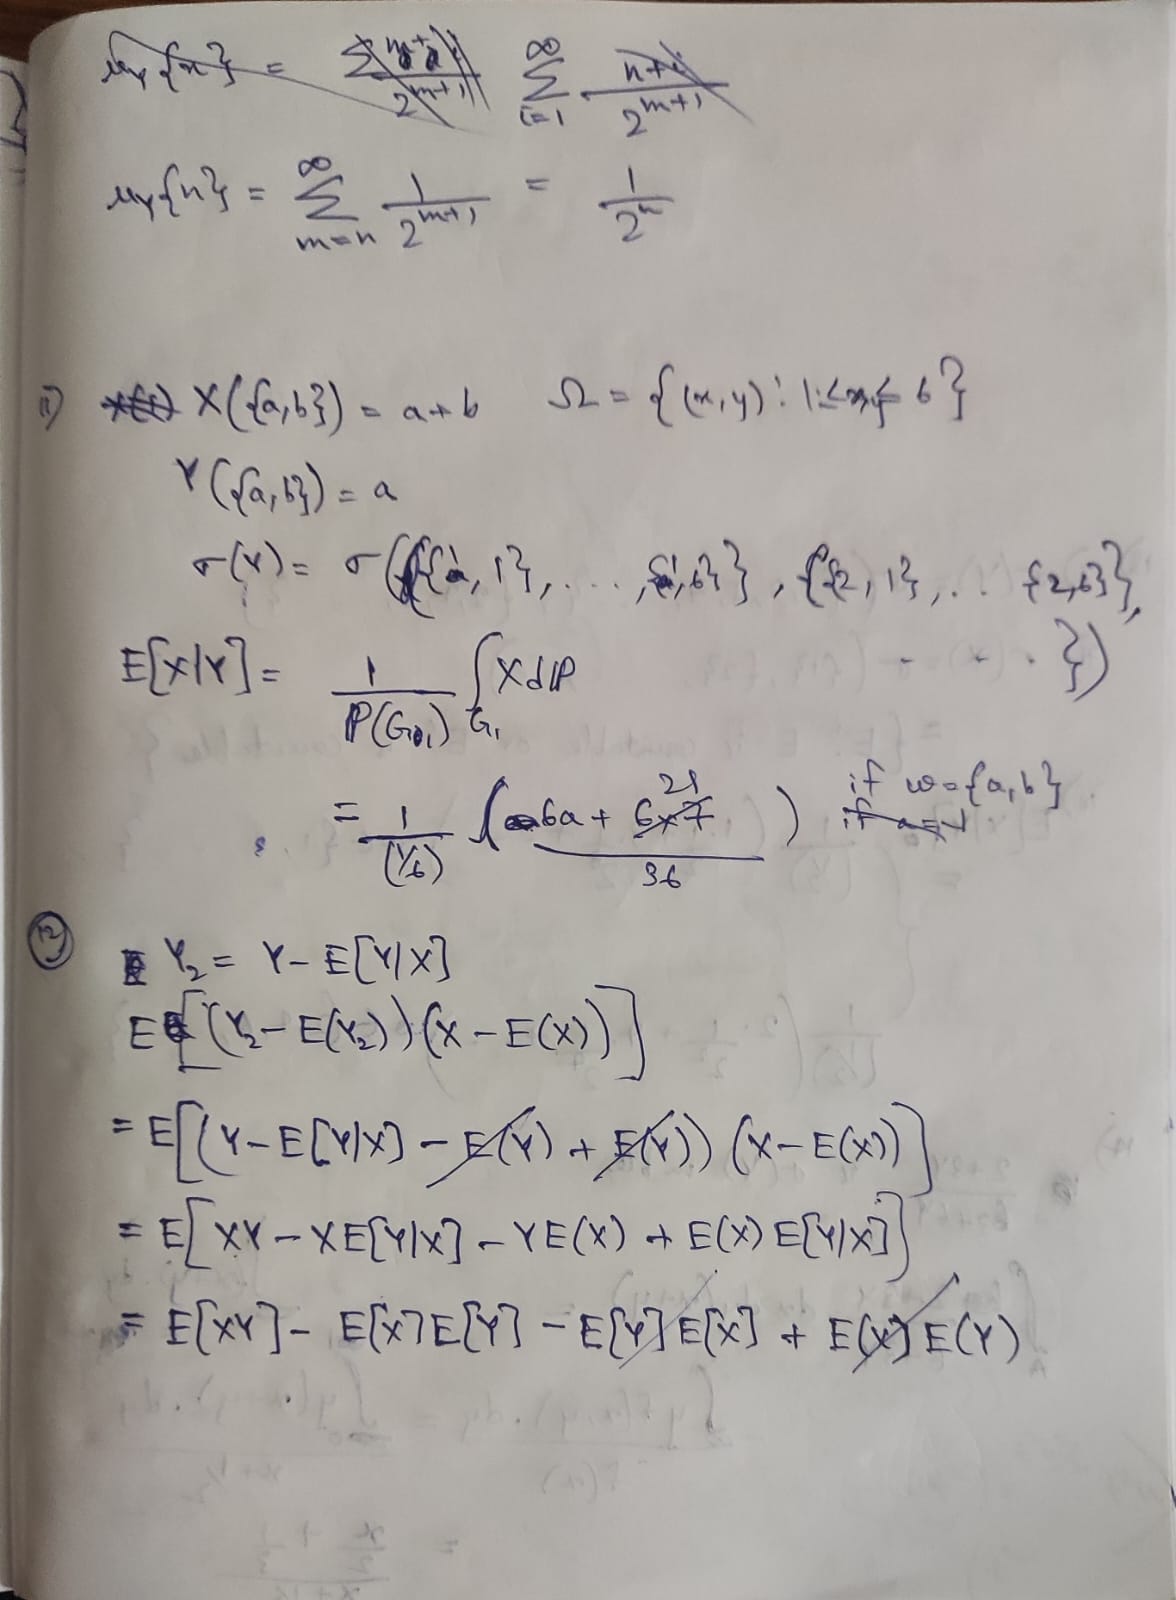 μ_Y{n} = Σ_{m=n}^{∞} 1/2^{m+1} = 1/2^n
11) X({a,b}) = a+b Ω = {(x,y) : 1≤x,y≤6}
Y({a,b}) = a
σ(Y) = σ({{1,1},...,{1,6}}, {{2,1},... {2,6}},
. . . })
E[X|Y] = 1/P(G_1) ∫_{G_1} X dP
= 1/(1/6) ((6a + 21)/36) if ω={a,b}
12) Y_2 = Y - E[Y|X]
E[(Y_2 - E(Y_2))(X - E(X))]
= E[(Y - E[Y|X] - E(Y) + E(Y))(X - E(X))]
= E[XY - XE[Y|X] - YE(X) + E(X)E[Y|X]]
= E[XY] - E[X]E[Y] - E[Y]E[X] + E(X)E(Y)